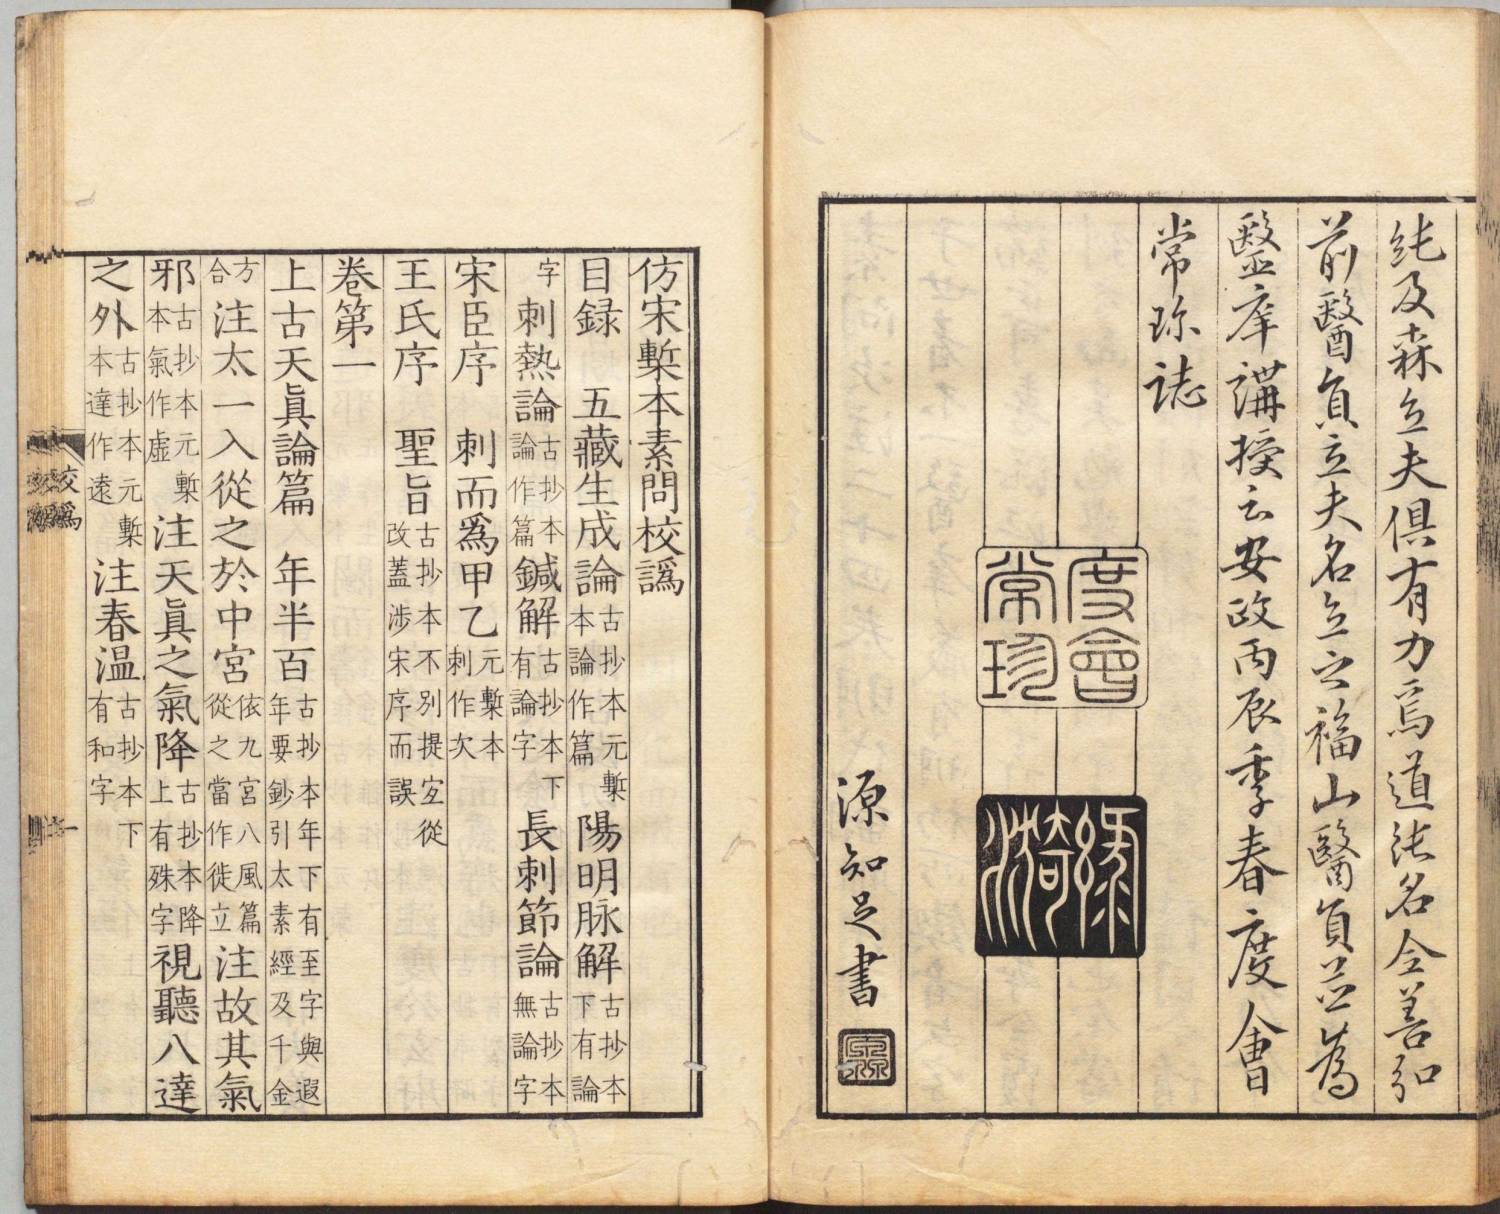 純及森立夫俱有力焉道純名全善弘
前醫員立夫名立之福山醫員並為
醫庠講授云安政丙辰季春度會
常珍誌
度會
常珍
源知足書
仿宋槧本素問校譌
目録　五藏生成論古抄本元槧本論作篇陽明脉解古抄本下有論
字刺熱論古抄本論作篇鍼解古抄本下有論字長刺節論古抄本無論字
宋臣序　刺而爲甲乙元槧本刺作次
王氏序　聖旨古抄本不別提宐從改蓋涉宋序而誤
卷第一
上古天眞論篇　年半百古抄本年下有至字與遐年要鈔引太素經及千金
方合注太一入從之於中宮依九宮八風篇從之當作徙立注故其氣
邪古抄本元槧本氣作虛注天眞之氣降古抄本降上有殊字視聽八達
之外古抄本元槧本達作遠注春温古抄本下有和字
校譌
一